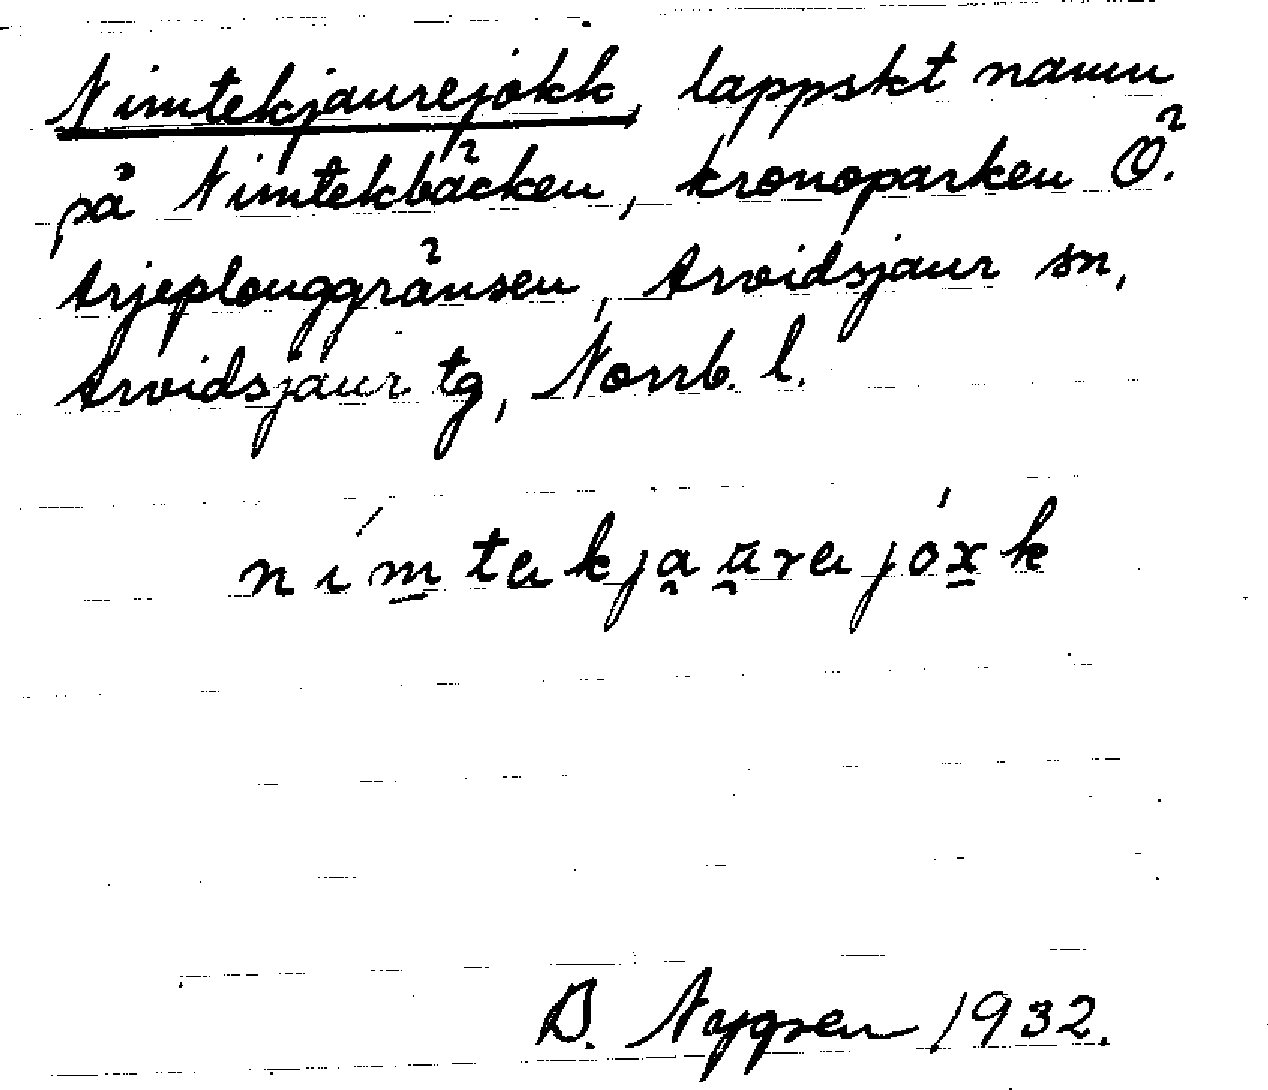 Nimtekjaurejokk, lappskt namn
på Nimtekbäcken, kronoparken Ö.
Arjeplouggränsen, Arvidsjaur sn,
Arvidsjaur tg, Norrb. l.
nímtekjaurejókk
B. Nygren 1932.